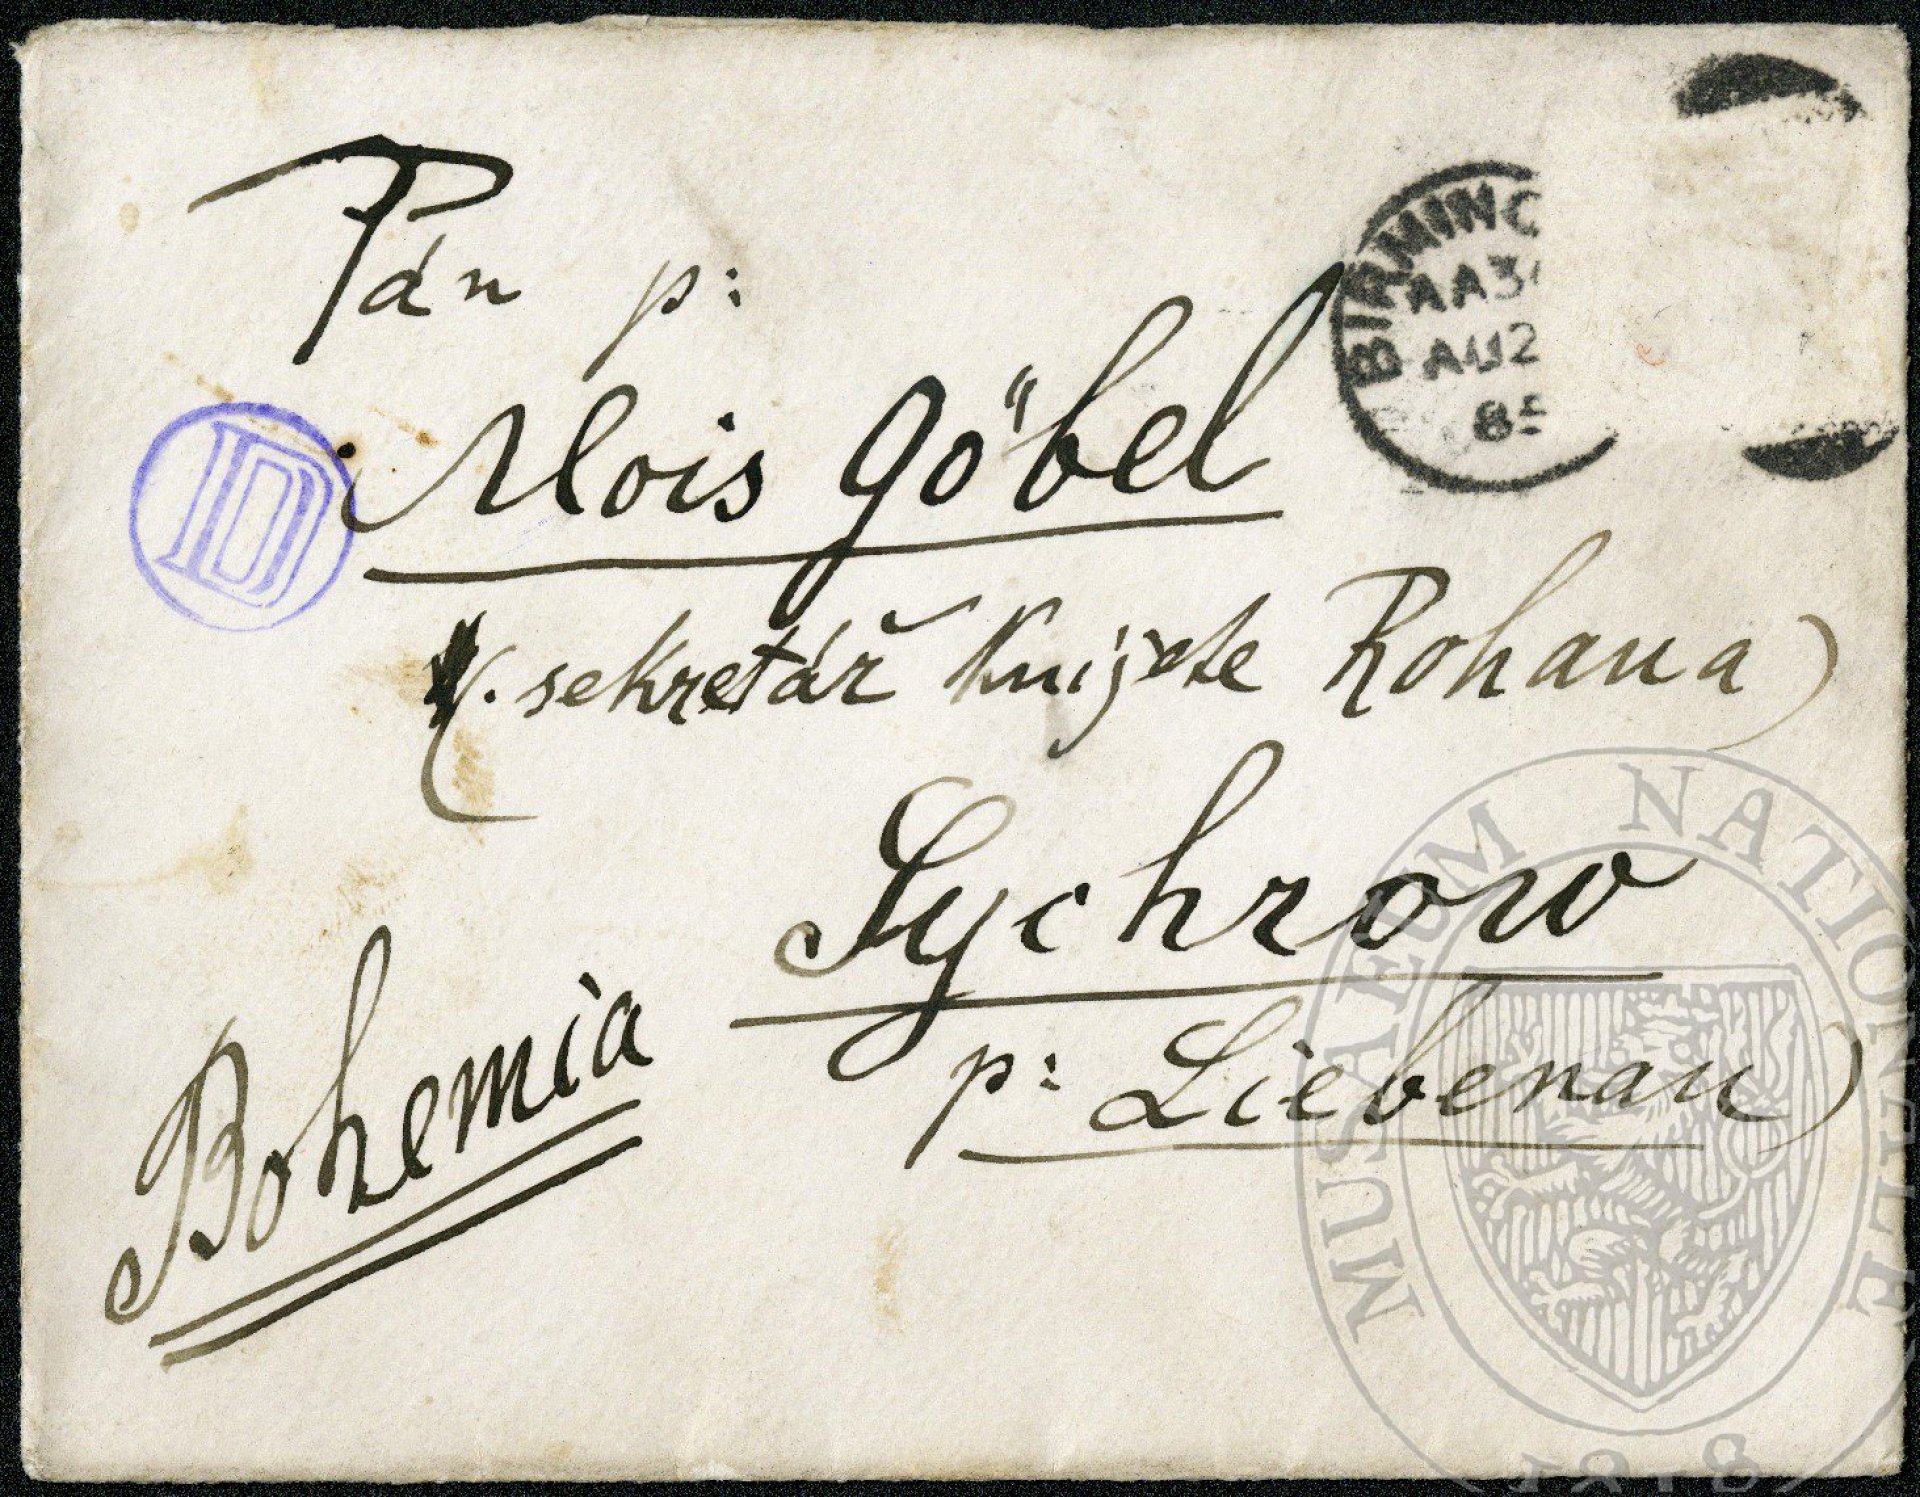 Pán p:
Alois Göbel
(. sekretář Knijete Rohana)
Sychrow
p: Liebenau)
Bohemia
BIRMING
AA3
AU2
85
D
MUSAEUM NATIONALE
1818